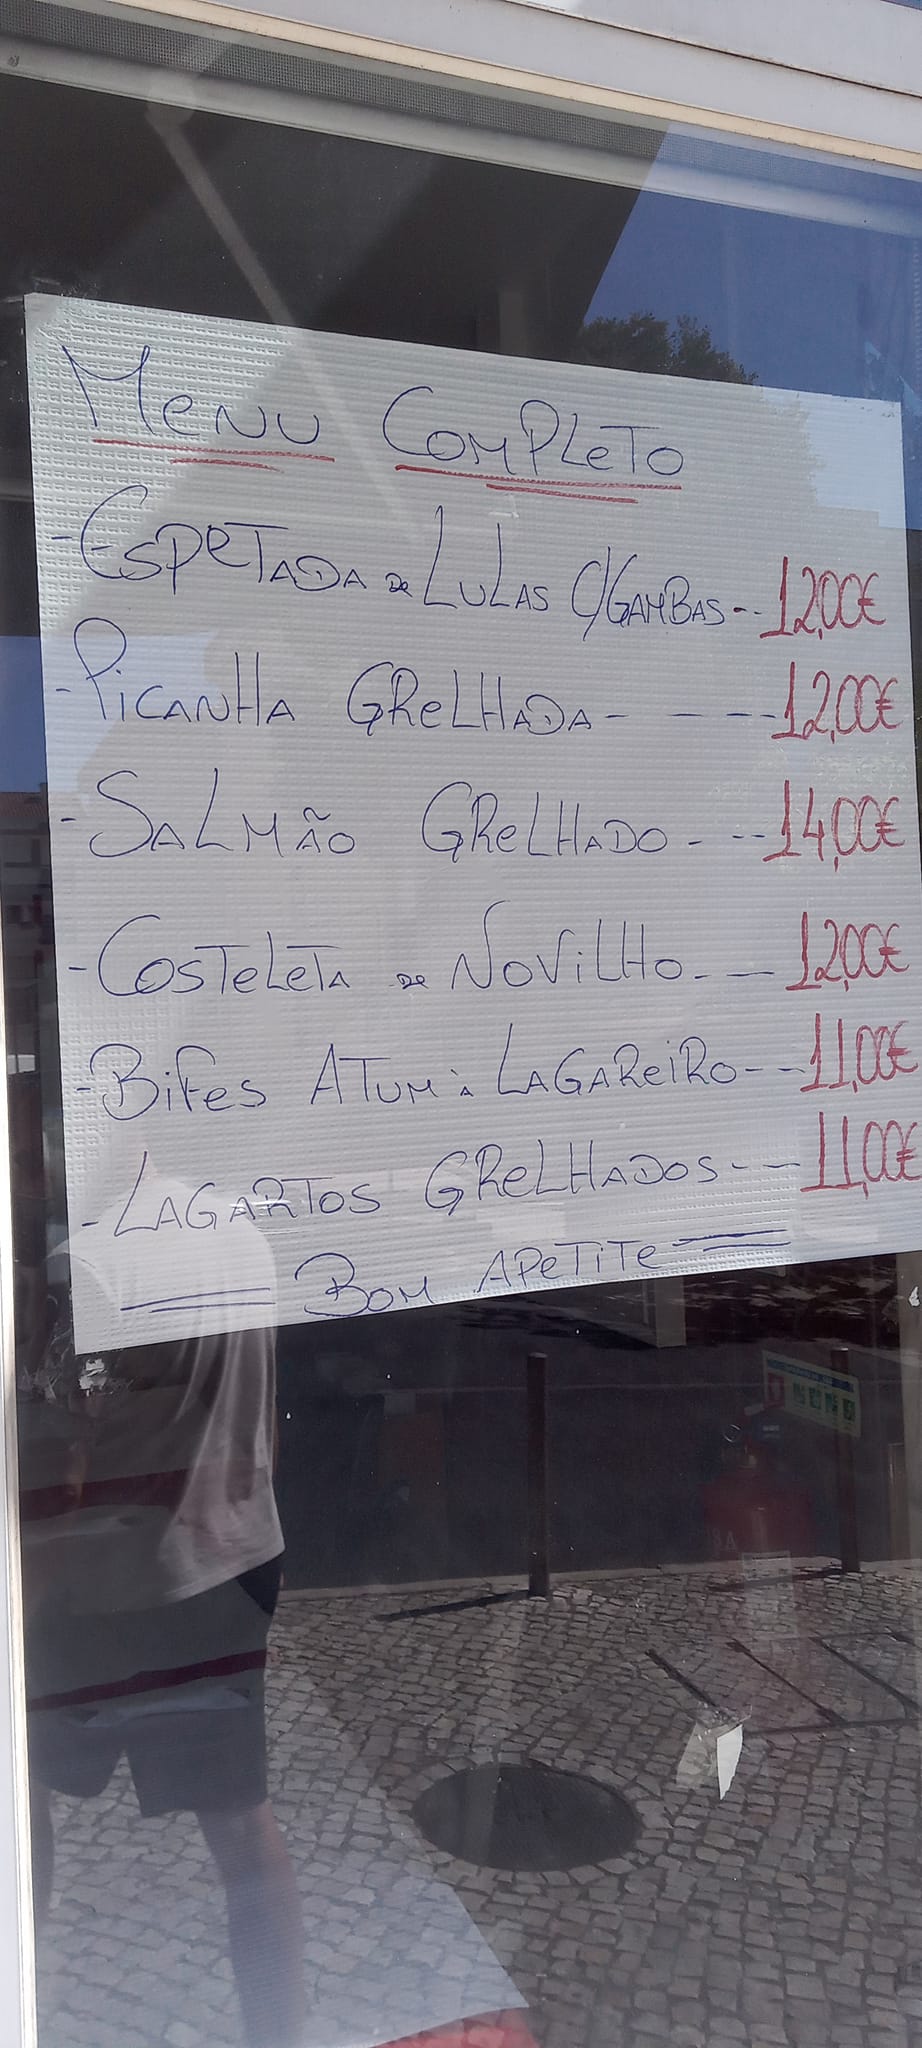 Menu Completo
- Espetada de Lulas c/Gambas -- 12,00€
- Picanha Grelhada - - - - 12,00€
- Salmão Grelhado - -- 14,00€
- Costeleta de Novilho - — 12,00€
- Bifes Atum à Lagareiro --- 11,00€
- Lagartos Grelhados --- 11,00€
Bom Apetite